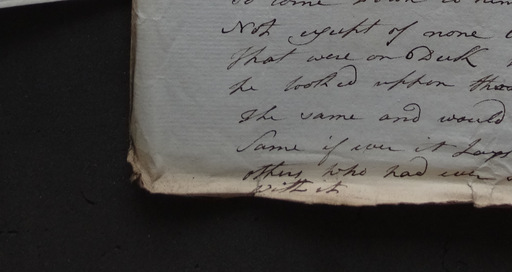 so come down to him
Not except of none
that were on Deck
he looked uppon tha
the same and would
Same if ever it Lays
others who had ever
with it